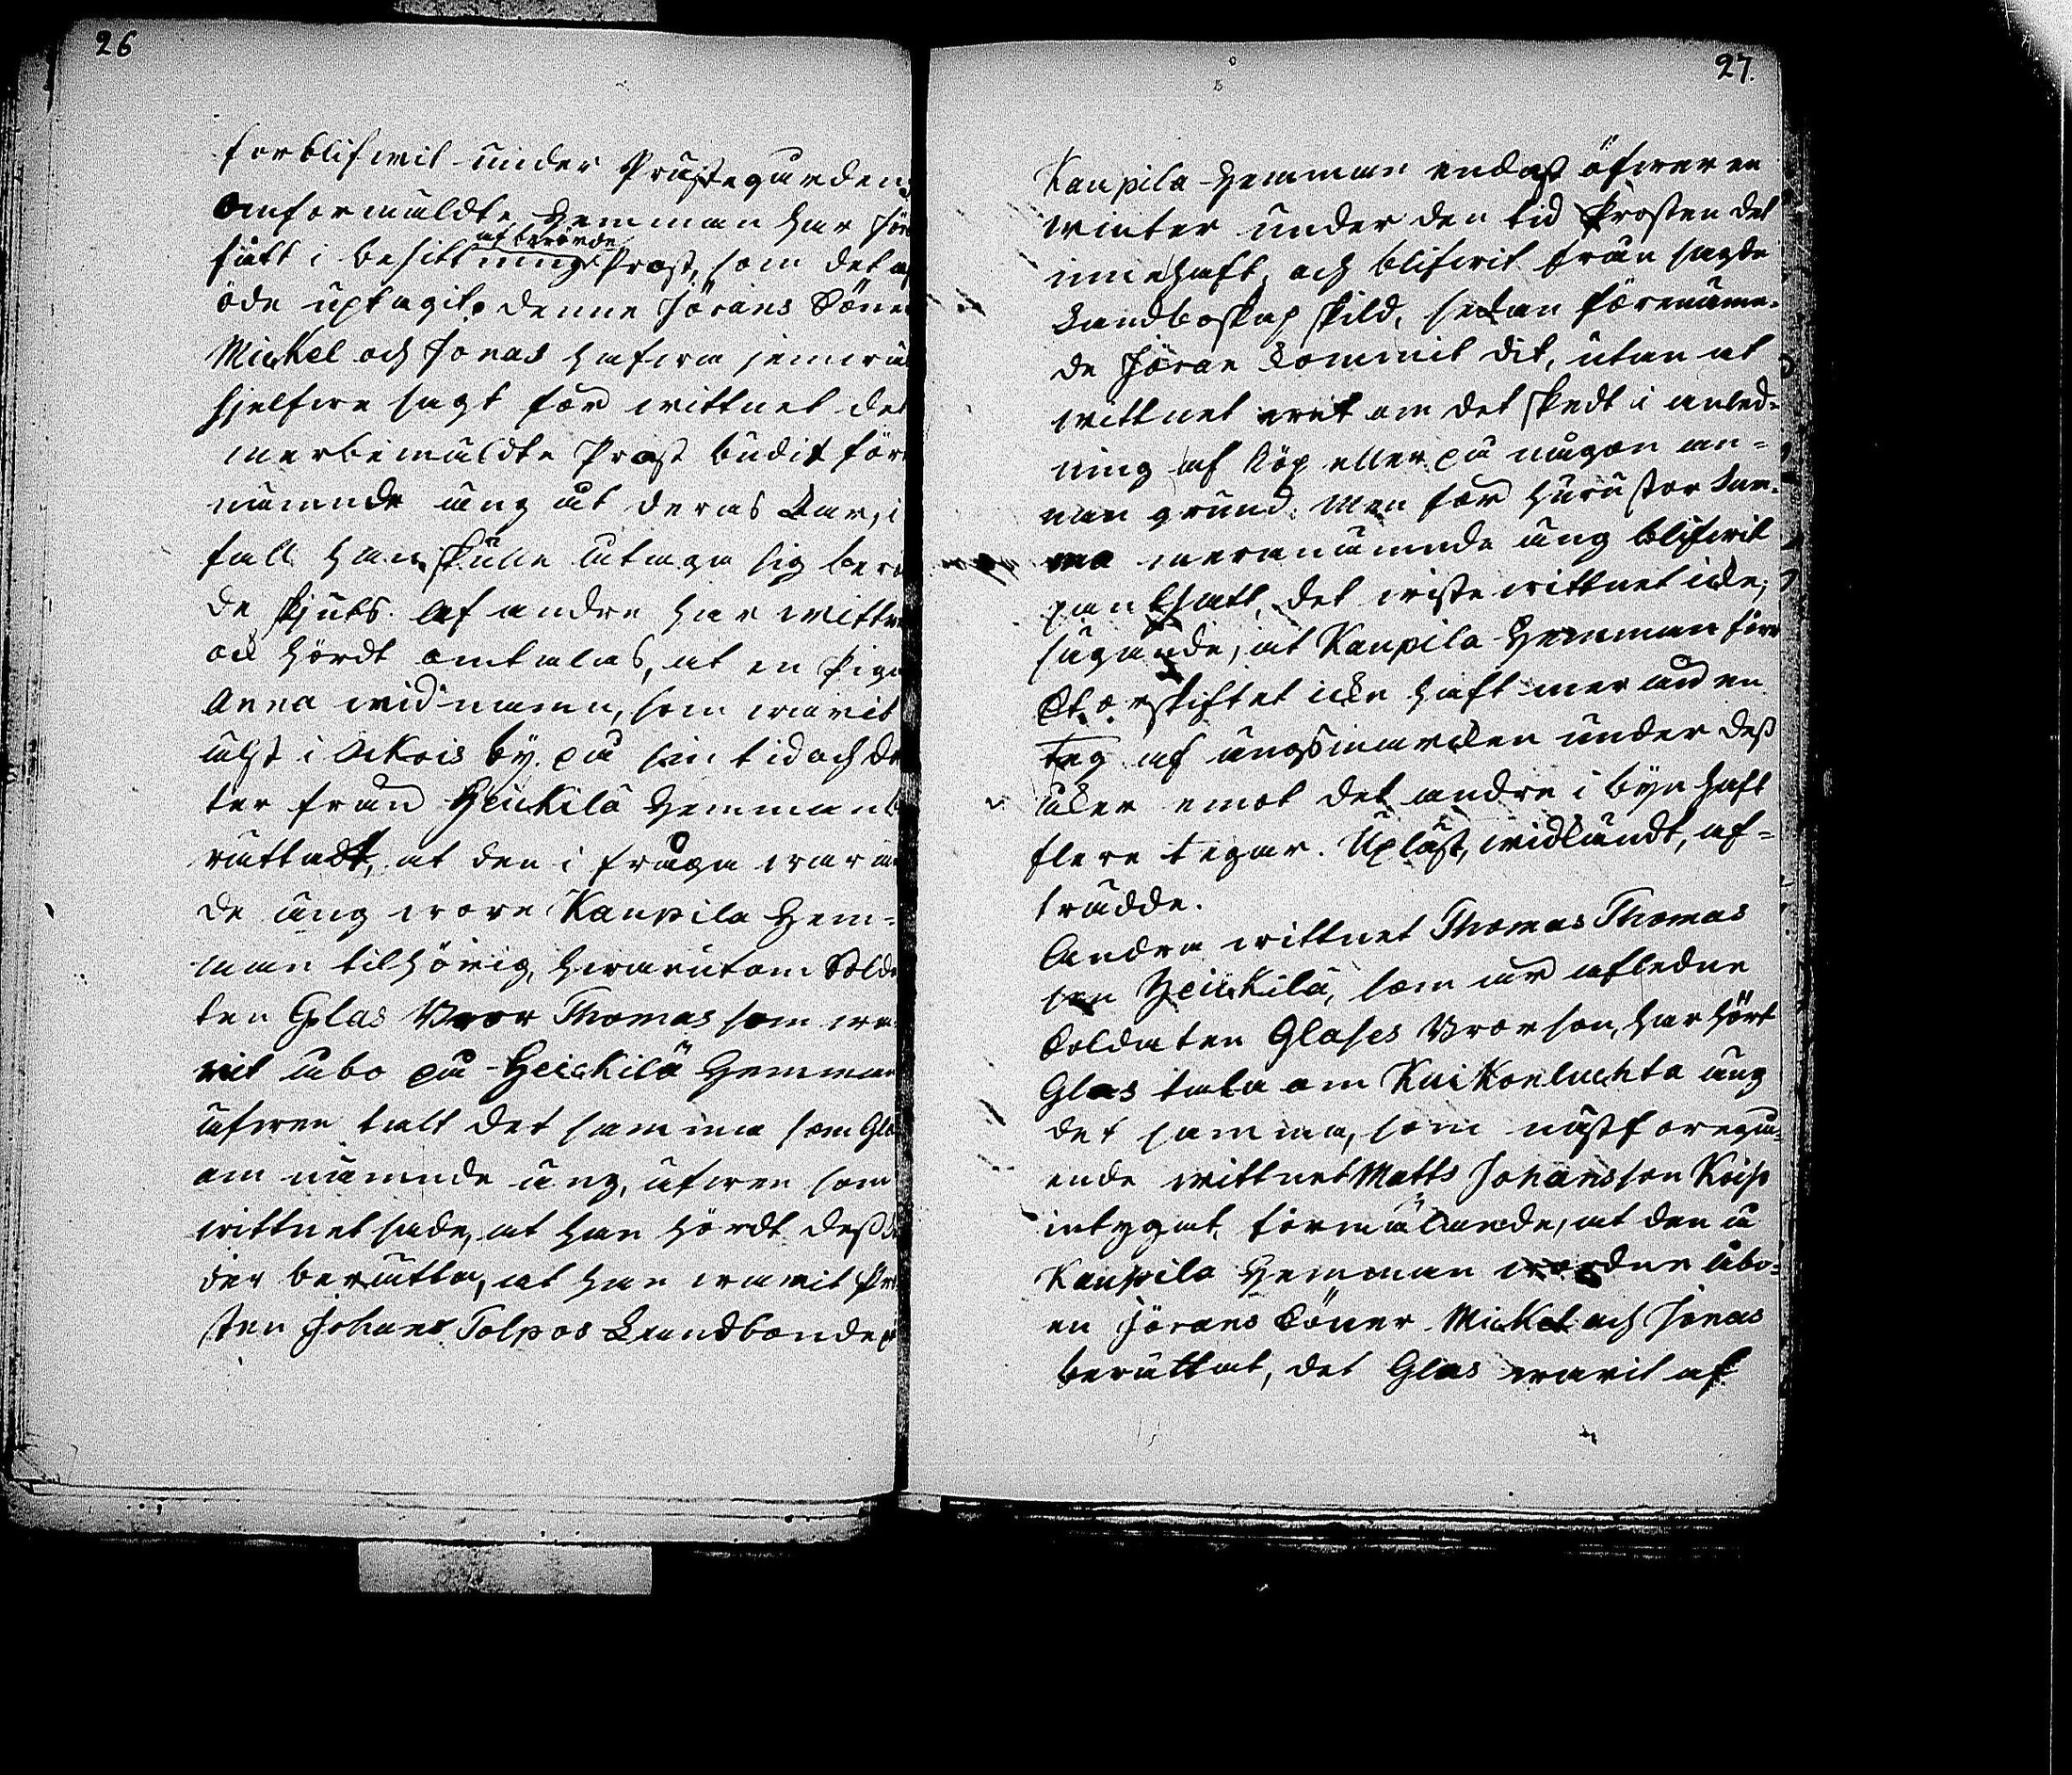 26
förblifwit under Prästegården
Omförmäldte Hemman har för
af berörde
fådt i besittning Prost, som det af
öde uptagit, denne Jörans Söner
Mickel och Jonas hafwa jemwäl
sjelfwe sagt för wittnet det
merbemäldte Prost budit för
nämnde äng åt deras Far, i
fall han skulle åtaga sig berör
de skjuts. Af andre har wittne
ock hördt omtalas, at en Piga
Anna widnamn, som warit
älst i Ackois by på sin tid och de
ter från Heickilä Hemman be
rättadt, at den i fråga waran
de äng wore Kaupila Hem-
man tilhörig, hwarutom Solda
ten Glas Bror Thomas som wa
rit åbo på Heickilä Hemman
äfwen talt det samma som Glas
om nämnde äng, äfwen som
wittnet sade, at han hördt dess
der berätta, at han warit Pro
sten Johans Tolpos Landbonde på
27.
Kaupila Hemman endast öfwer en
winter under den tid Prosten det
innehaft, och blifwit från sagde
Landboskap skild, sedan förenämn-
de Jöran kommit dit, utan at
wittnet wet om det skedt i anled-
ning af köp eller på någon an-
nan grund. Men för huru stor Sum-
ma meranämnde äng blifwit
pantsatt, det wiste wittnet icke,
sägande, at Kaupila Hemman före
Storskiftet icke haft mer än en
teg af ängsmarcken under dess
åker emot det andre i byn haft
flere tegar. Upläst, widkändt, af-
trädde.
Andra wittnet Thomas Thomas
son Heickilä, som är afledne
Soldaten Glases Brorson, har hört
Glas tala om Kuikonluchta äng
det samma, som nästföregå-
ende wittnet Matts Johansson Knip
intygat, förmälande, at den å
Kaupila Hemman wordne åbo-
en Jörans Söner Mickel och Jonas
berättat, det Glas warit af